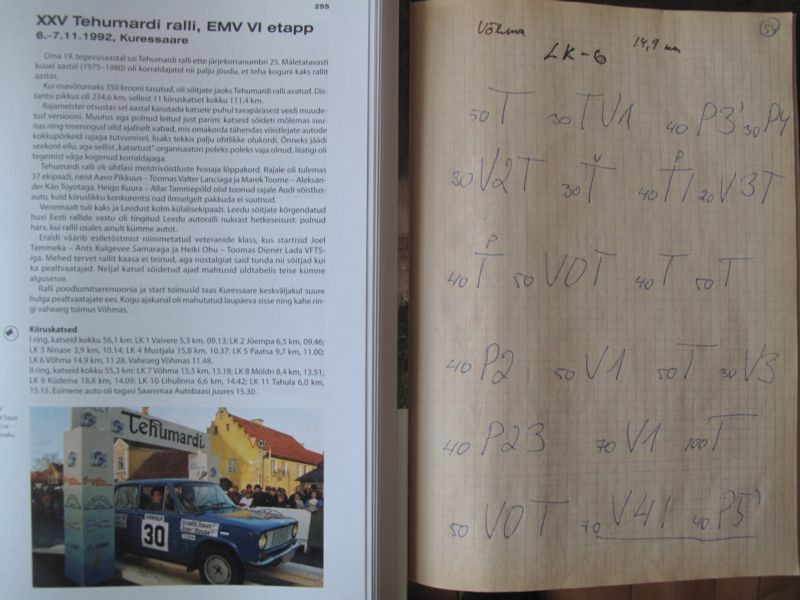 255
XXV Tehumardi ralli, EMV VI etapp
6.–7.11.1992, Kuressaare
Oma 19. tegevusaastal sai Tehumardi ralli ette järjekorranumbri 25. Mäletatavasti
kuuel aastal (1975–1980) oli korraldajatel nii palju jõudu, et teha koguni kaks rallit
aastas.
Kui osavõtumaks 350 krooni tasutud, oli sõitjate jaoks Tehumardi ralli avatud. Dis-
tantsi pikkus oli 234,6 km, sellest 11 kiiruskatset kokku 111,4 km.
Rajameister otsustas sel aastal kasutada katsete puhul tavapärasest veidi muude-
tud versiooni. Muutus aga polnud leitud just parim: katseid sõideti mõlemas suu-
nas ning treeningud olid ajaliselt vabad, mis omakorda tähendas võistlejate autode
kokkupõrkeid rajaga tutvumisel, lisaks tekkis palju ohtlikke olukordi. Õnneks jäädi
seekord ellu, aga sellist „katsetust” organisaatori poleks poleks vaja olnud, liiatigi oli
tegemist väga kogenud korraldajaga.
Tehumardi ralli oli ühtlasi meistrivõistluste hooaja lõppakord. Rajale oli tulemas
37 ekipaaži, neist Aavo Pikkuus – Toomas Valter Lanciaga ja Marek Toome – Aleksan-
der Käo Toyotaga. Heigo Kuura – Allar Tammepõld olid toonud rajale Audi võistlus-
auto, kuid kiiruslikku konkurentsi nad ilmselgelt pakkuda ei suutnud.
Venemaalt tuli kaks ja Leedust kolm külalisekipaaži. Leedu sõitjate kõrgendatud
huvi Eesti rallide vastu oli tingitud Leedu autoralli nukrast hetkeseisust: polnud
harv, kui rallil osales ainult kümme autot.
Eraldi väärib esiletõstmist niinimetatud veteranide klass, kus startisid Joel
Tammeka – Ants Kulgevee Samaraga ja Heiki Ohu – Toomas Diener Lada VFTS-
iga. Mehed tervet rallit kaasa ei teinud, aga nostalgiat said tunda nii sõitjad kui
ka pealtvaatajad. Neljal katsel sõidetud ajad mahtusid üldtabelis teise kümne
algusesse.
Ralli poodiumitseremoonia ja start toimusid taas Kuressaare keskväljakul suure
hulga pealtvaatajate ees. Kogu ajakanal oli mahutatud laupäeva sisse ning kahe rin-
gi vaheaeg toimus Võhmas.
Kiiruskatsed
I ring, katseid kokku 56,1 km: LK 1 Vaivere 5,3 km, 09.13; LK 2 Jõempa 6,5 km, 09.46;
LK 3 Ninase 3,9 km, 10.14; LK 4 Mustjala 15,8 km, 10.37; LK 5 Paatsa 9,7 km, 11.00;
LK 6 Võhma 14,9 km, 11.28. Vaheaeg Võhmas 11.48.
II ring, katseid kokku 55,3 km: LK 7 Võhma 15,5 km, 13.18; LK 8 Möldri 8,4 km, 13.51;
LK 9 Küdema 18,8 km, 14.09; LK 10 Lihulinna 6,6 km, 14.42; LK 11 Tahula 6,0 km,
15.15. Esimene auto oli tagasi Saaremaa Autobaasi juures 15.30.
Tehumardi
30
Võhma
LK-6
14,9 km
50 T 30 TV1 40 P3' 30 P4
30 V2T 30 T 40 T1 20 V3T
40 T 50 V0T 40 T 50 T
40 P2 50 V1 50 T 30 V3
40 P23 70 V1 100 T
50 V0T 70 V4! 40 P5'